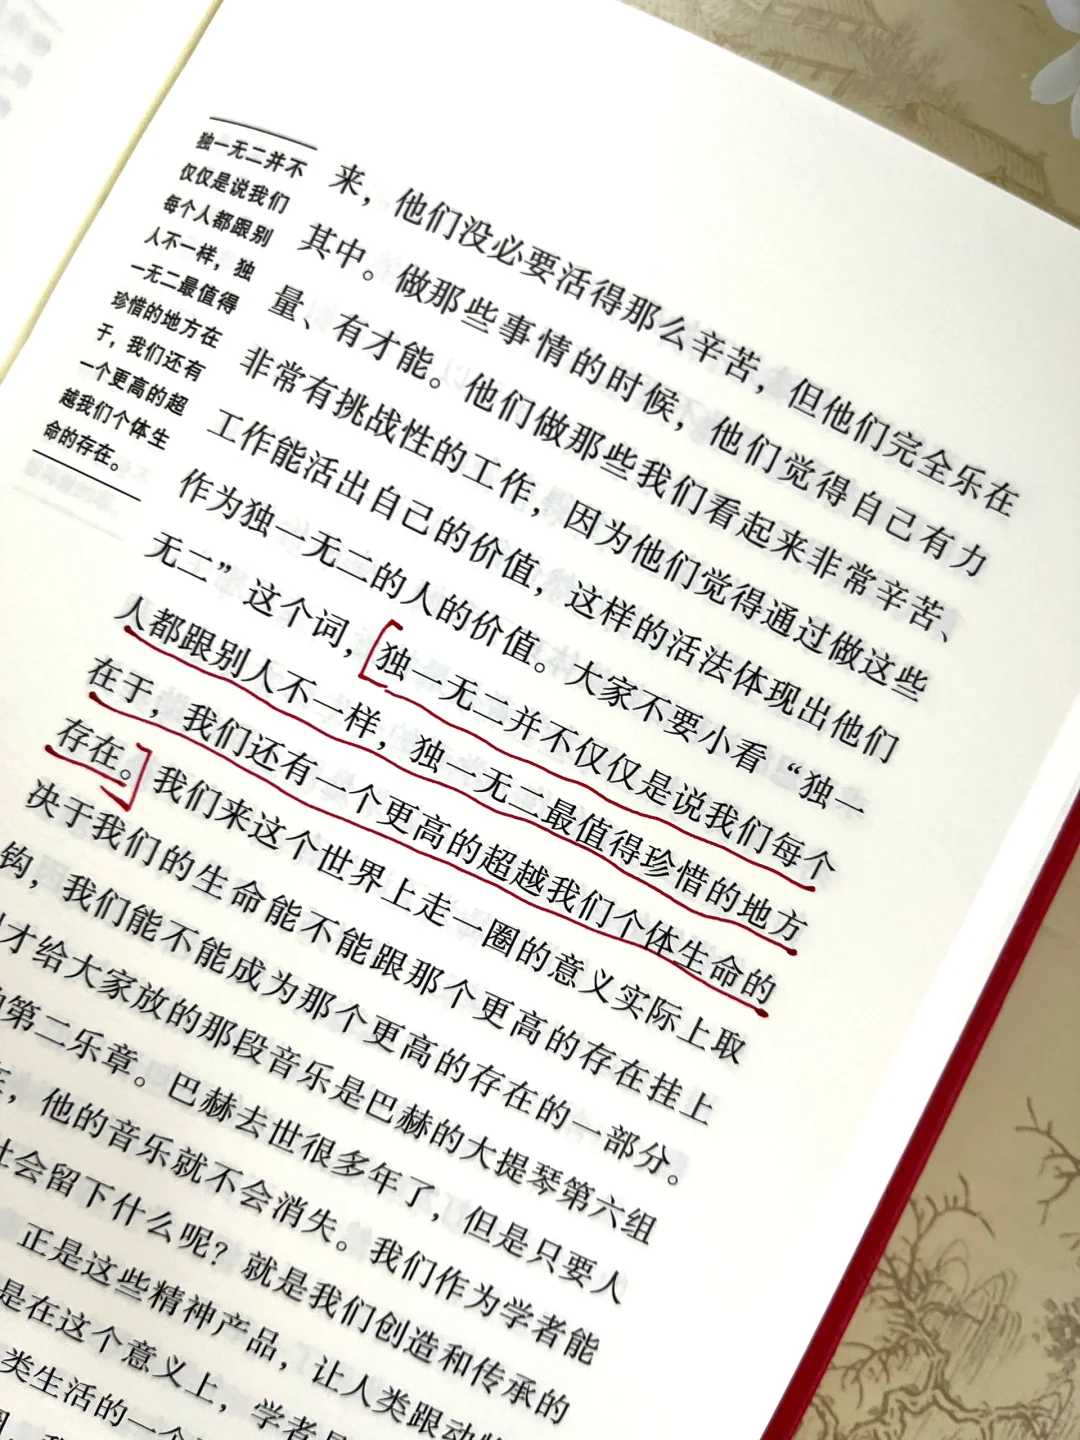 独一无二并不
仅仅是说我们
每个人都跟别
人不一样，独
一无二最值得
珍惜的地方在
于，我们还有
一个更高的超
越我们个体生
命的存在。
来，他们没必要活得那么辛苦，但他们完全乐在
其中。做那些事情的时候，他们觉得自己有力
量、有才能。他们做那些我们看起来非常辛苦、
非常有挑战性的工作，因为他们觉得通过做这些
工作能活出自己的价值，这样的活法体现出他们
作为独一无二的人的价值。大家不要小看“独一
无二”这个词，独一无二并不仅仅是说我们每个
人都跟别人不一样，独一无二最值得珍惜的地方
在于，我们还有一个更高的超越我们个体生命的
存在。我们来这个世界上走一圈的意义实际上取
决于我们的生命能不能跟那个更高的存在挂上
钩，我们能不能成为那个更高的存在的一部分。
才给大家放的那段音乐是巴赫的大提琴第六组
第二乐章。巴赫去世很多年了，但是只要人
，他的音乐就不会消失。我们作为学者能
会留下什么呢？就是我们创造和传承的
正是这些精神产品，让人类跟动
是在这个意义上，学者
类生活的一个